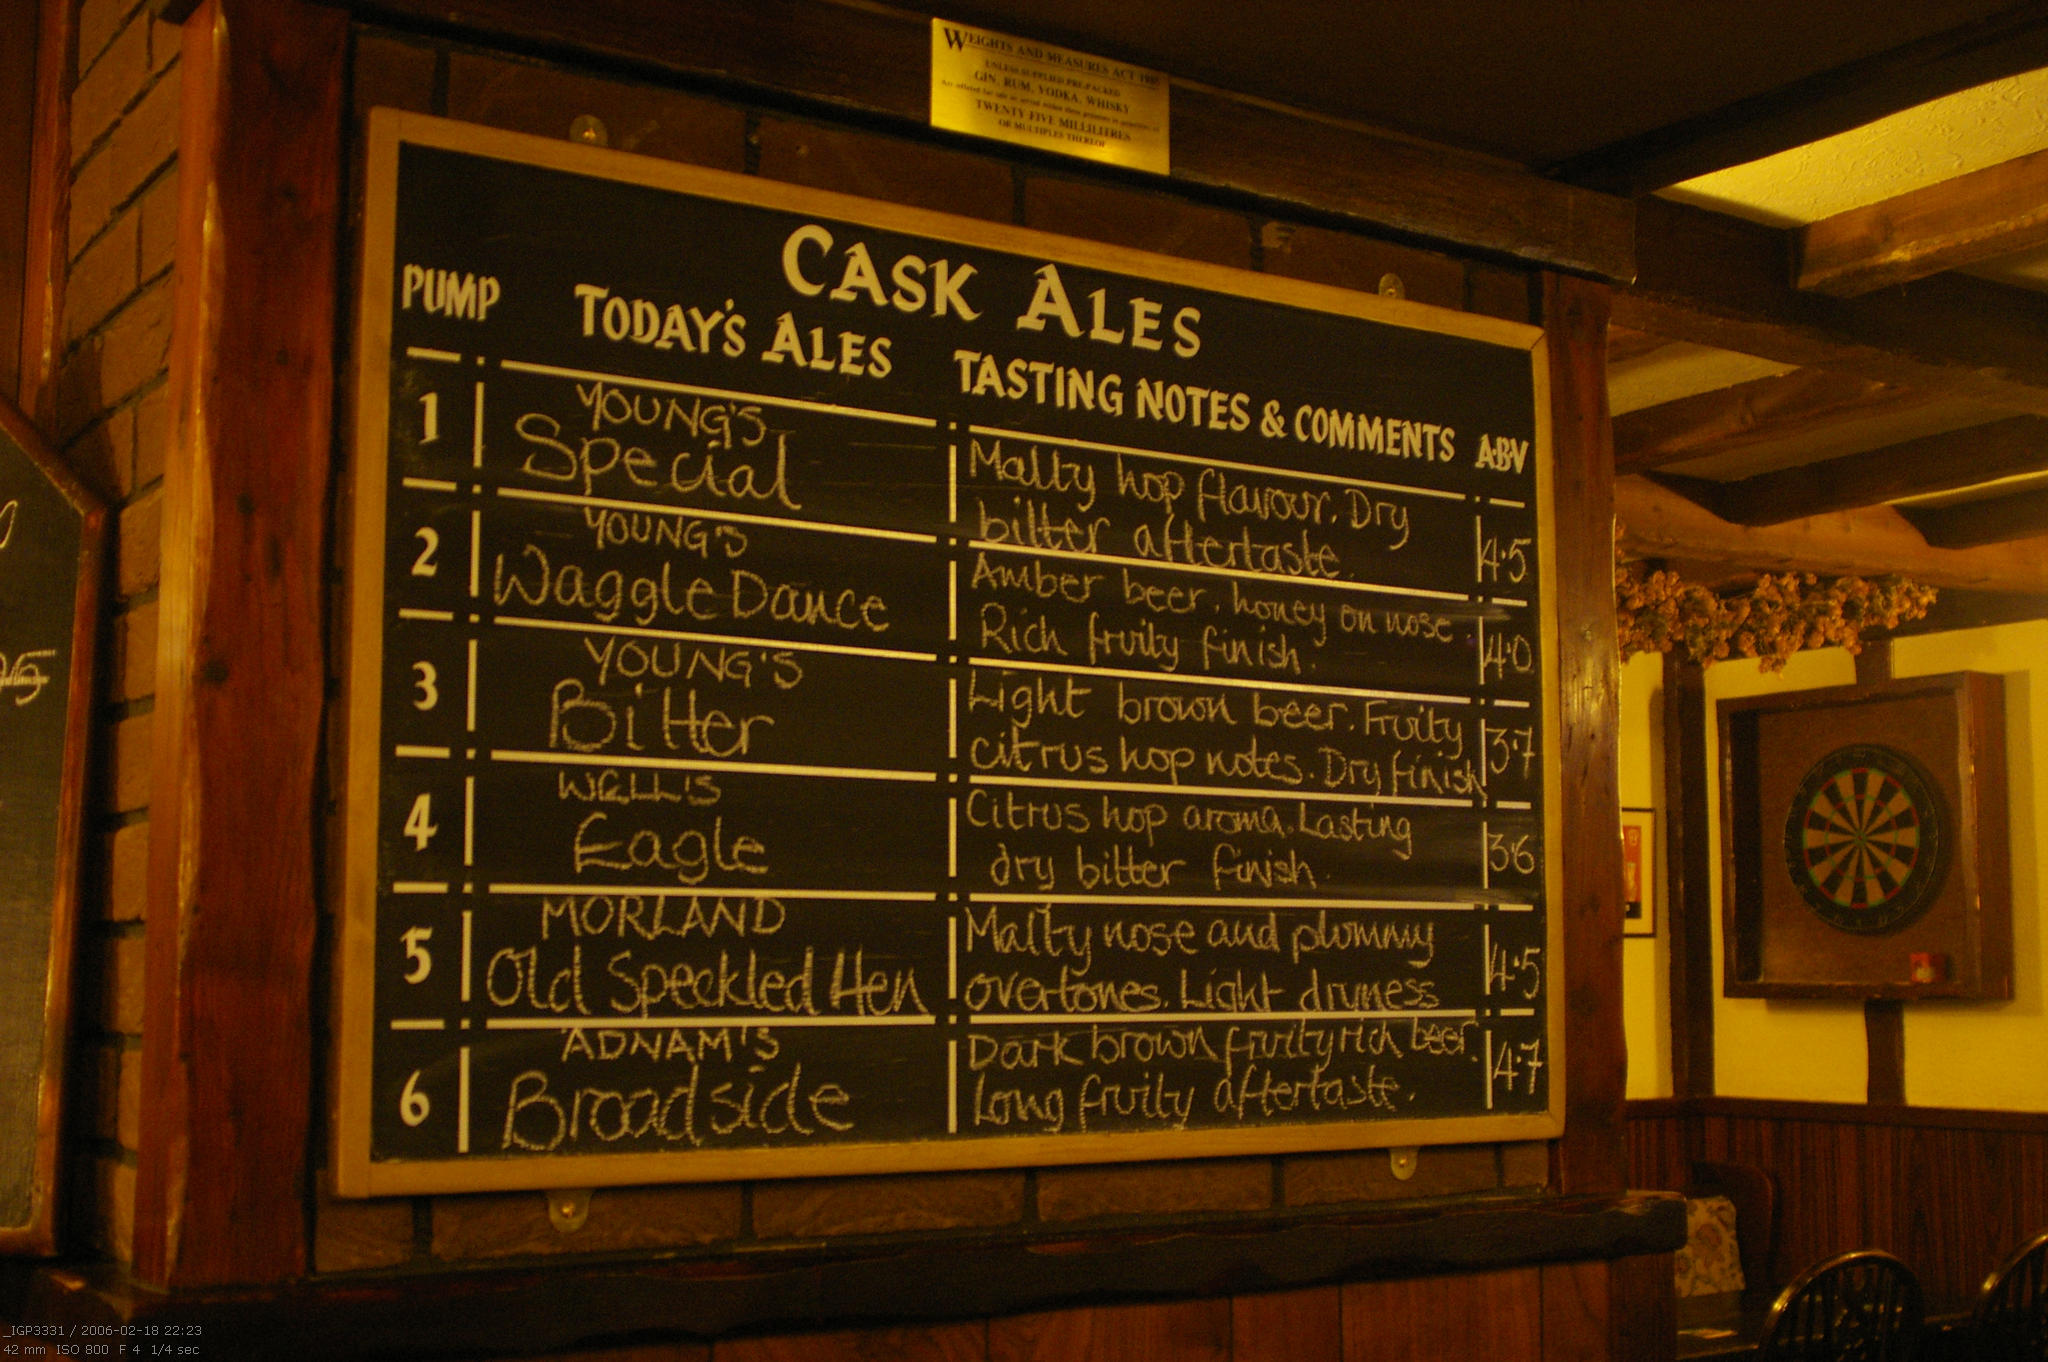 WEIGHTS AND MEASURES ACT
UNLESS SUPPLIED PRE-PACKED
GIN, RUM, VODKA, WHISKY
TWENTY FIVE MILLILITRES
OR MULTIPLES THEREOF
CASK ALES
PUMP TODAY'S ALES TASTING NOTES & COMMENTS A·B·V
1 YOUNG'S
Special
Malty hop flavour. Dry
bitter aftertaste. 4.5
2 YOUNG'S
Waggle Dance
Amber beer. honey on nose.
Rich fruity finish. 4.0
3 YOUNG'S
Bitter
Light brown beer. Fruity
citrus hop notes. Dry finish 3.7
4 WELL'S
Eagle
Citrus hop aroma. Lasting
dry bitter finish. 3.6
5 MORLAND
Old Speckled Hen
Malty nose and plummy
overtones. Light dryness 4.5
6 ADNAM'S
Broadside
Dark brown fruity rich beer.
Long fruity aftertaste. 4.7
_IGP3331 / 2006-02-18 22:23
42 mm ISO 800 F 4 1/4 sec